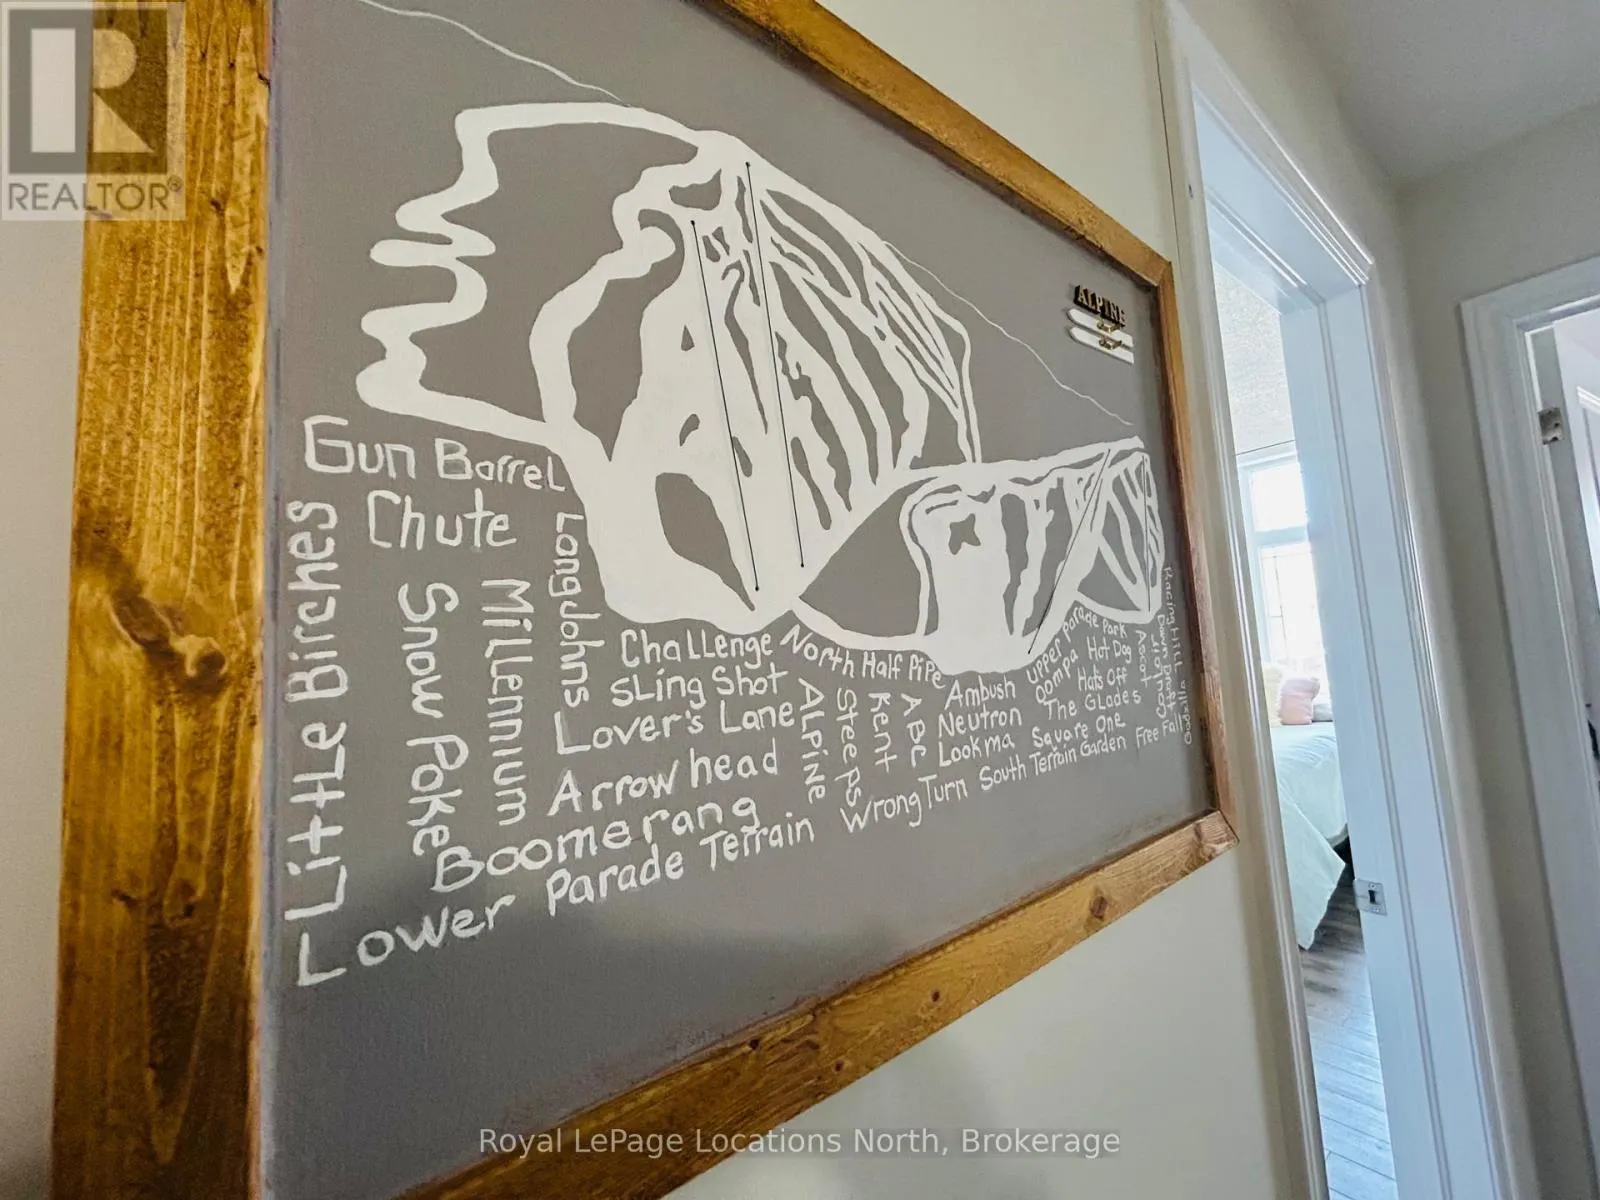 REALTOR®
ALPINE
Gun Barrel
Chute
Little Birches
Snow Poke
Millennium
LongJohns
Challenge
Sling Shot
Lover's Lane
Arrow head
Boomerang
Lower Parade Terrain
North Half Pipe
ALPINE
Steeps
Kent
ABC
Ambush
Neutron
Lookma
Wrong Turn
Upper Parade Park
Oompa
Hot Dog
Hats Off
The Glades
Square One
South Terrain Garden
Ascot
Free Fall
Racing Hill
Royal LePage Locations North, Brokerage